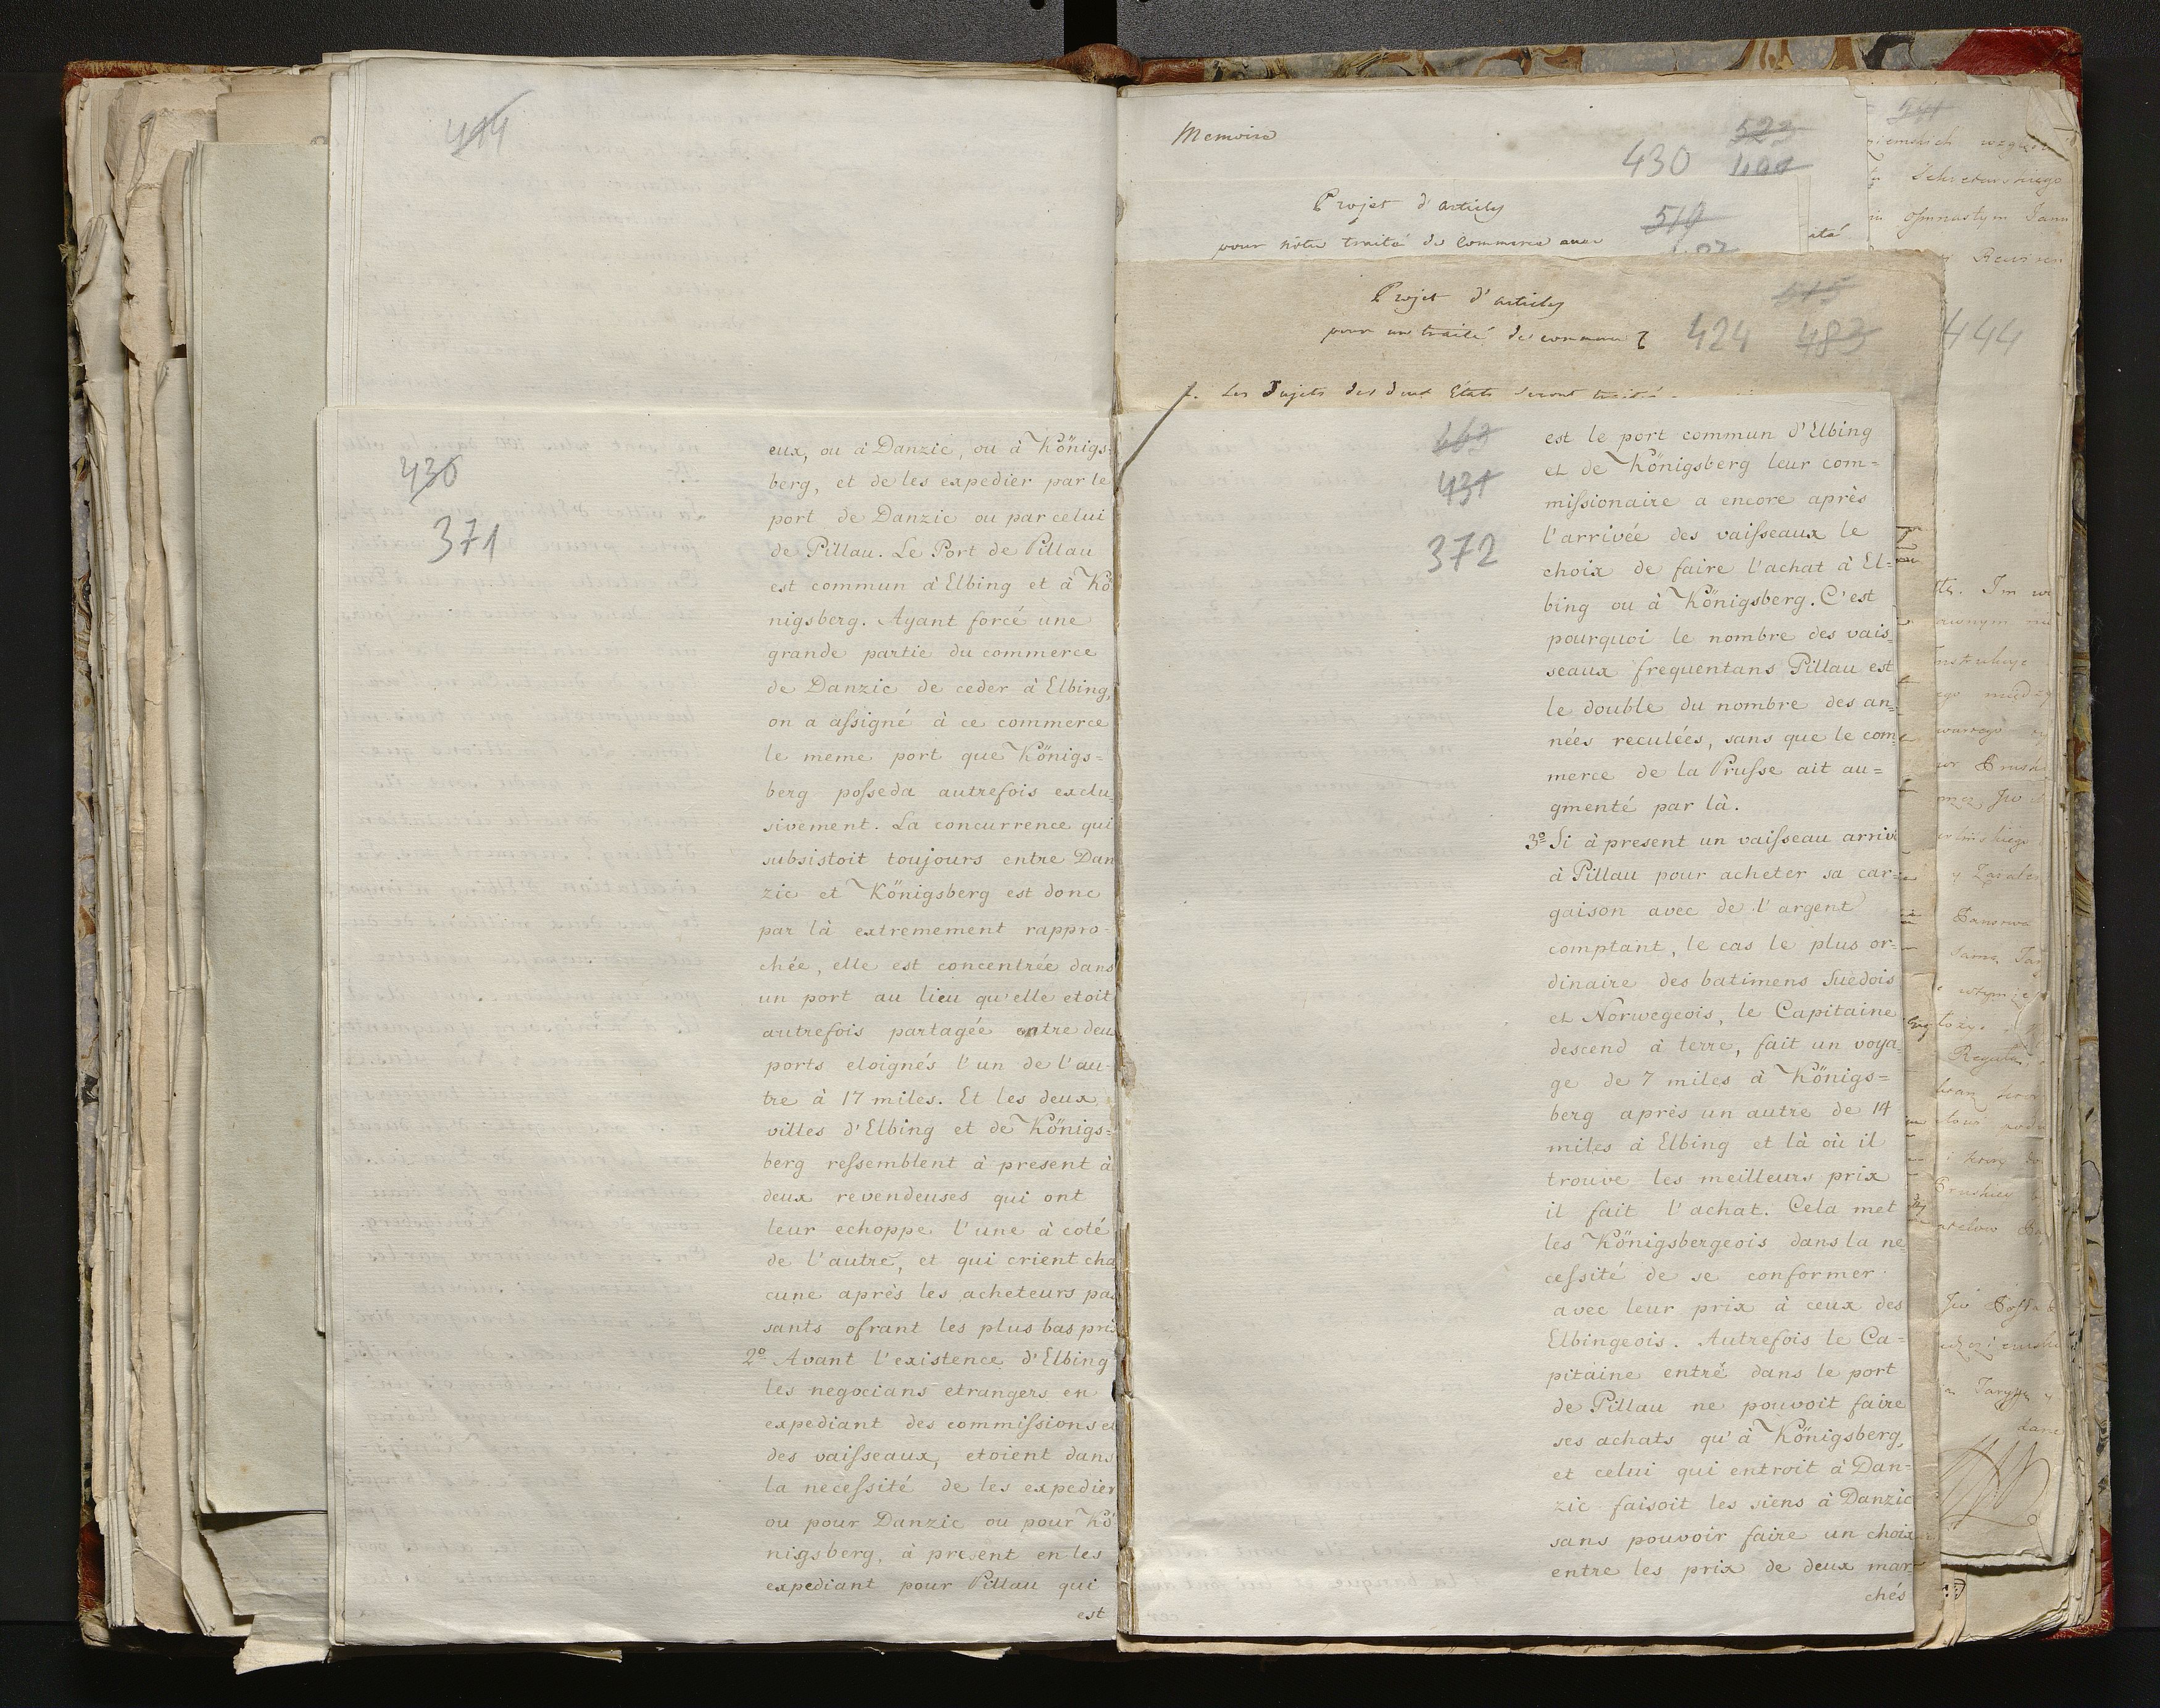 414
430
371
eux, ou à Danzic, ou à Königs=
berg, et de les expedier par le
port de Danzic ou par celui
de Pillau. Le Port de Pillau
est commun à Elbing et à Kö
nigsberg. Ayant forcé une
grande partie du commerce
de Danzic de ceder à Elbing,
on a assigné à ce commerce
le meme port que Königs=
berg posseda autrefois exclu
sivement. La concurrence qui
subsistoit toujours entre Dan
zic et Königsberg est donc
par là extremement rappro-
chée, elle est concentrée dans
un port au lieu qu'elle etoit
autrefois partagée entre deux
ports eloignés l'un de l'au-
tre à 17 miles. Et les deux
villes d'Elbing et de Königs=
berg ressemblent à present à
deux revendeuses qui ont
leur echoppe l'une à coté
de l'autre, et qui crient cha
cune après les acheteurs pas
sants ofrant les plus bas prix
2º Avant l'existence d'Elbing
les negocians etrangers en
expediant des commissions et
des vaisseaux, etoient dans
la necessité de les expedier
ou pour Danzic ou pour Kö
nigsberg, à present en les
expediant pour Pillau qui
est
Memoire
523
430
Projet d'articles
pour nôtre traité de commerce avec
519
ité
Projet d'articles
pour un traité de commerce
515
424 483
1. Les Sujets des deux Etats seront
463
431
372
est le port commun d'Elbing
et de Königsberg leur com=
missionaire a encore après
l'arrivée des vaisseaux le
choix de faire l'achat à El=
bing ou à Königsberg. C'est
pourquoi le nombre des vais=
seaux frequentans Pillau est
le double du nombre des an=
nées reculées, sans que le com
merce de la Prusse ait au=
gmenté par là.
3º Si à present un vaisseau arrive
à Pillau pour acheter sa car=
gaison avec de l'argent
comptant, le cas le plus or=
dinaire des batimens Suedois
et Norwegeois, le Capitaine
descend à terre, fait un voya=
ge de 7 miles à Königs=
berg après un autre de 14
miles à Elbing et là où il
trouve les meilleurs prix
il fait l'achat. Cela met
les Königsbergeois dans la ne
cessité de se conformer
avec leur prix à ceux des
Elbingeois. Autrefois le Ca=
pitaine entré dans le port
de Pillau ne pouvoit faire
ses achats qu'à Königsberg,
et celui qui entroit à Dan-
zic faisoit les siens à Danzic
sans pouvoir faire un choix
entre les prix de deux mar-
chés
444